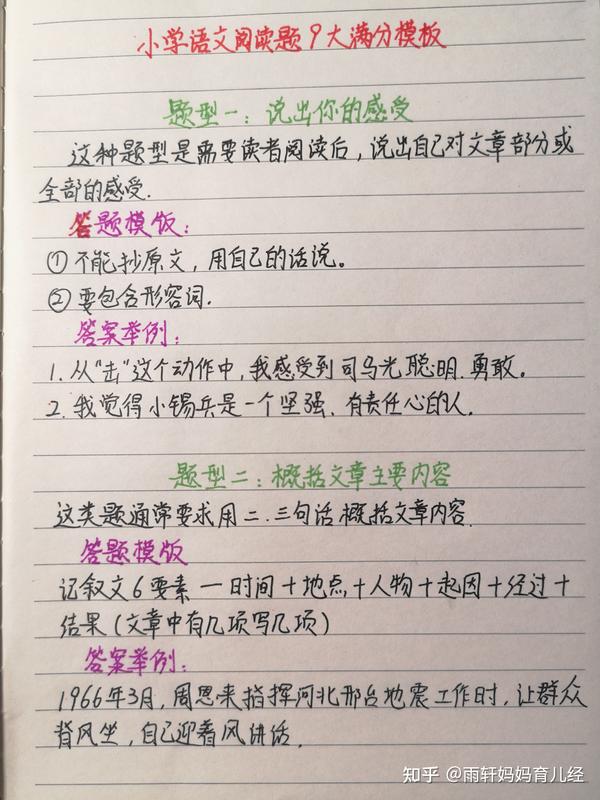 小学语文阅读题9大满分模板
题型一：说出你的感受
这种题型是需要读者阅读后，说出自己对文章部分或
全部的感受.
答题模饭：
①不能抄原文，用自己的话说。
②要包含形容词.
答案举例：
1.从“击”这个动作中，我感受到司马光聪明.勇敢。
2.我觉得小锡兵是一个坚强.有责任心的人.
题型二：概括文章主要内容
这类题通常要求用二.三句话概括文章内容.
答题模版
记叙文6要素一时间+地点+人物+起因+经过+
结果(文章中有几项写几项)
答案举例：
1966年3月，周恩来指挥河北邢台地震工作时，让群众
背风坐，自己迎着风讲话.
知乎 @雨轩妈妈育儿经